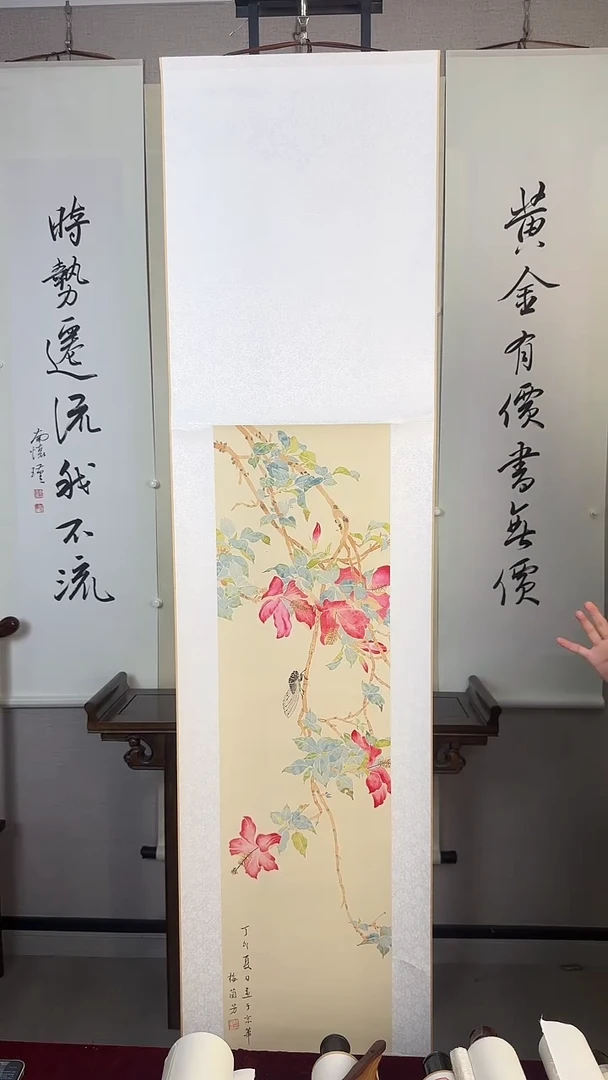 黄金有價書無價
時勢遷流我不流
南懷瑾
丁卯夏日畫于京華
梅蘭芳